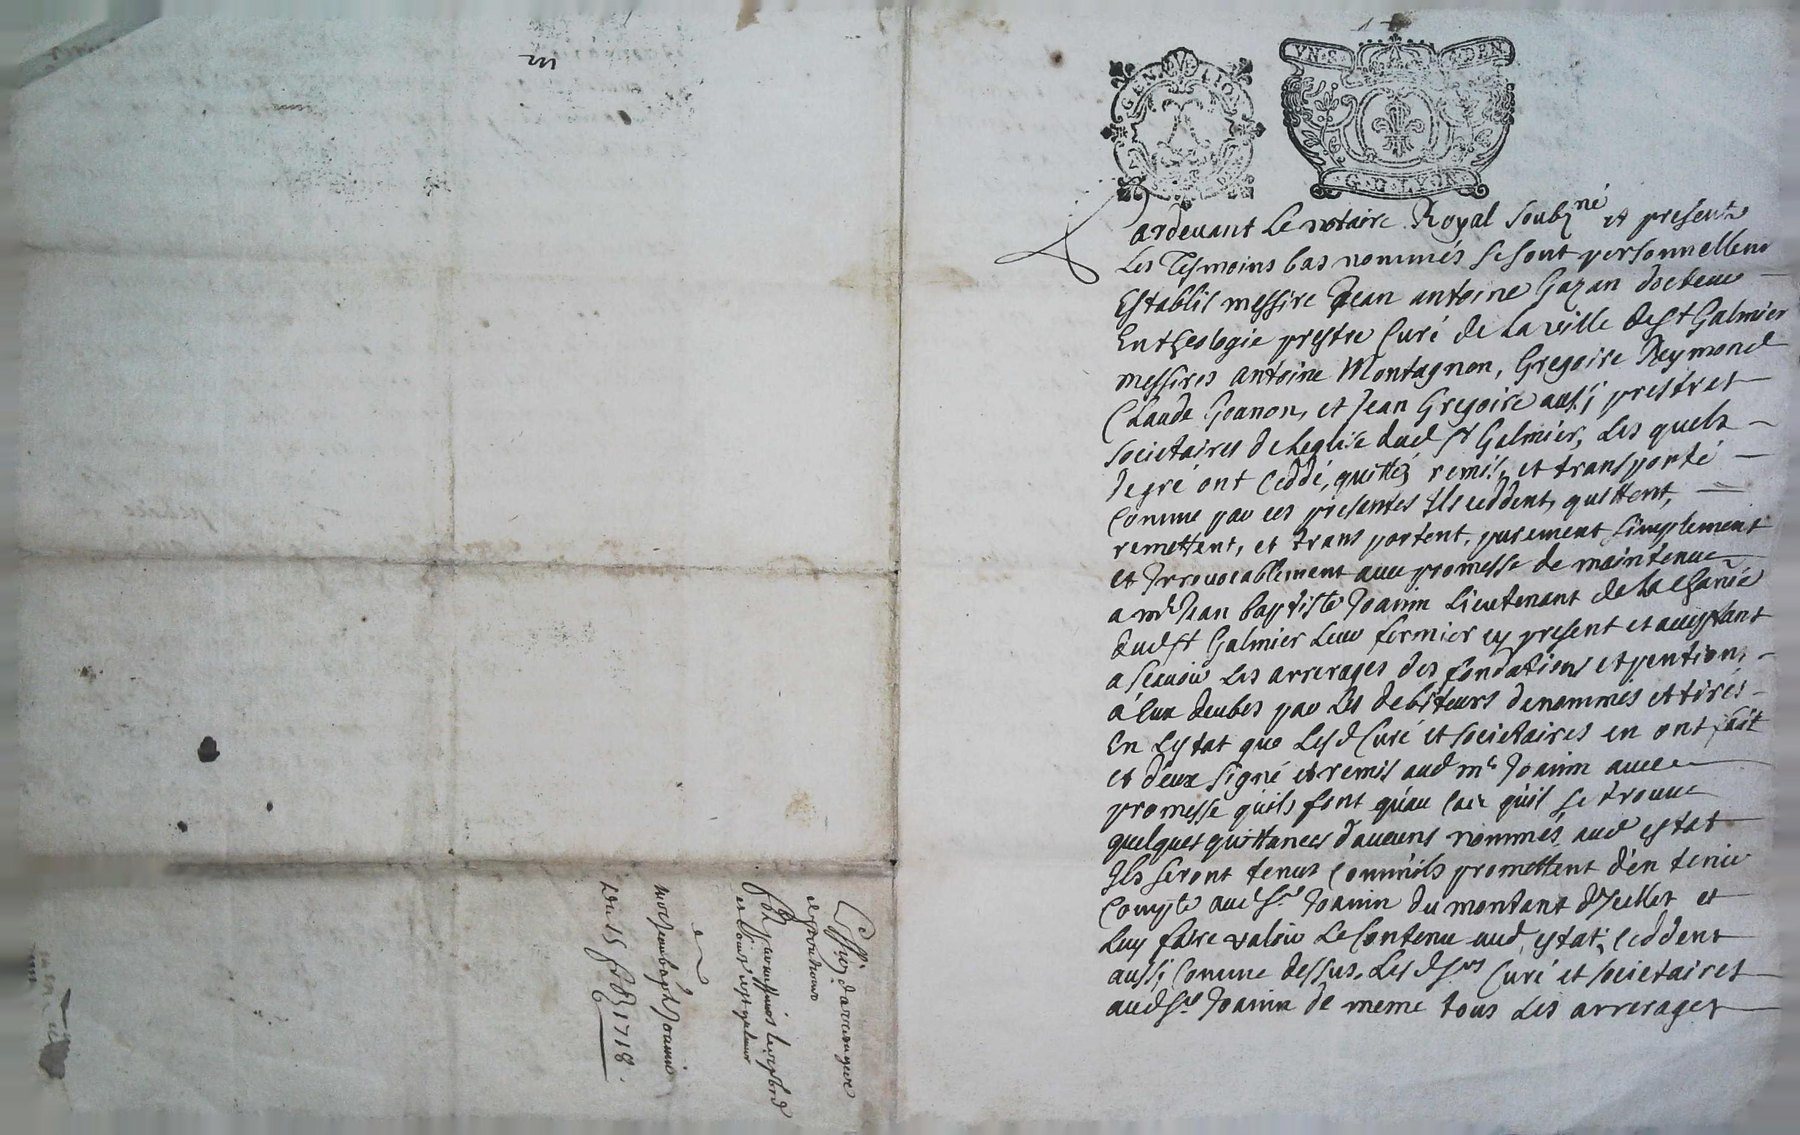 GEN
VN·S· DEN
G·D·LYON
Pardevant Le notaire Royal soubzné et presentz
Les Tesmoins bas nommés se sont personnellemt
Establis messire Jean antoine Gazan docteur
En theologie prestre Curé de La ville de St Galmier
messires antoine Montagnon, Gregoire Reymond
Claude Goanon, et Jean Gregoire aussi prestres
societaires de leglise dud St Galmier, Les quels
de gré ont Ceddé, quitté, remis, et transporté
comme par ces presentes Ils ceddent, quittent,
remettent, et transportent, purement simplement
et Irrevocablement avec promesse de maintenue
a mr Jean baptiste Joanin Lieutenant de La
dud St Galmier Leur fermier cy present et acceptant
a scavoir Les arrerages des fondations et pentions
à Eux deubes par Les debiteurs denommés et tirés
En Lestat que Lesd Curé et societaires en ont fait
et d'eux signé et remis aud mr Joanin avec
promesse qu'ils font qu'au cas qu'il se trouve
quelques quittances daucuns nommés aud estat
Ils seront tenus comm'ils promettent d'en tenir
Compte aud Sr Joanin du montant d'Icelles et
Luy faire valoir Le Contenu aud estat; ceddent
aussi Comme dessus Lesd Srs Curé et societaires
aud Sr Joanin de meme tous Les arrerages
d'arrerages
et pentions
par messieurs
mre Jean bapt Joanin
Du 15 1718.